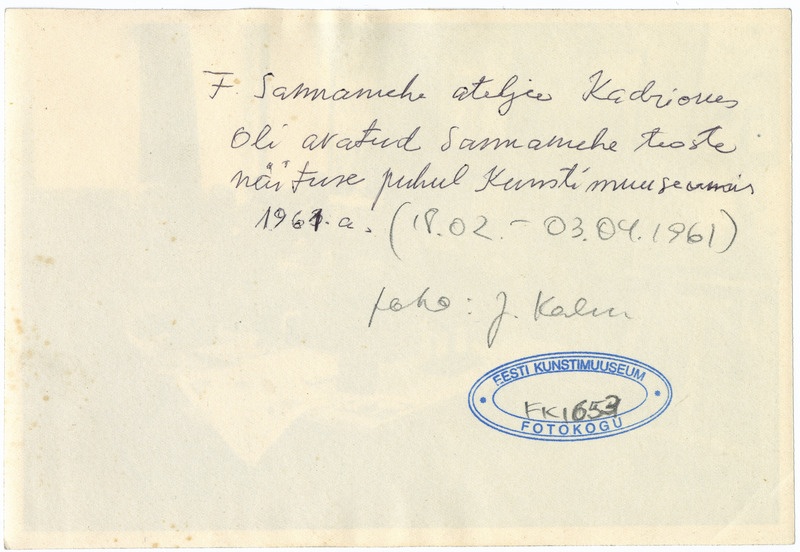 F. Sannamehe ateljee Kadriorus
Oli avatud Sannamehe teoste
näituse puhul Kunstimuuseumis
1961. a. (18.02. - 03.04.1961)
foto: J. Kalm
EESTI KUNSTIMUUSEUM
FK1653
FOTOKOGU